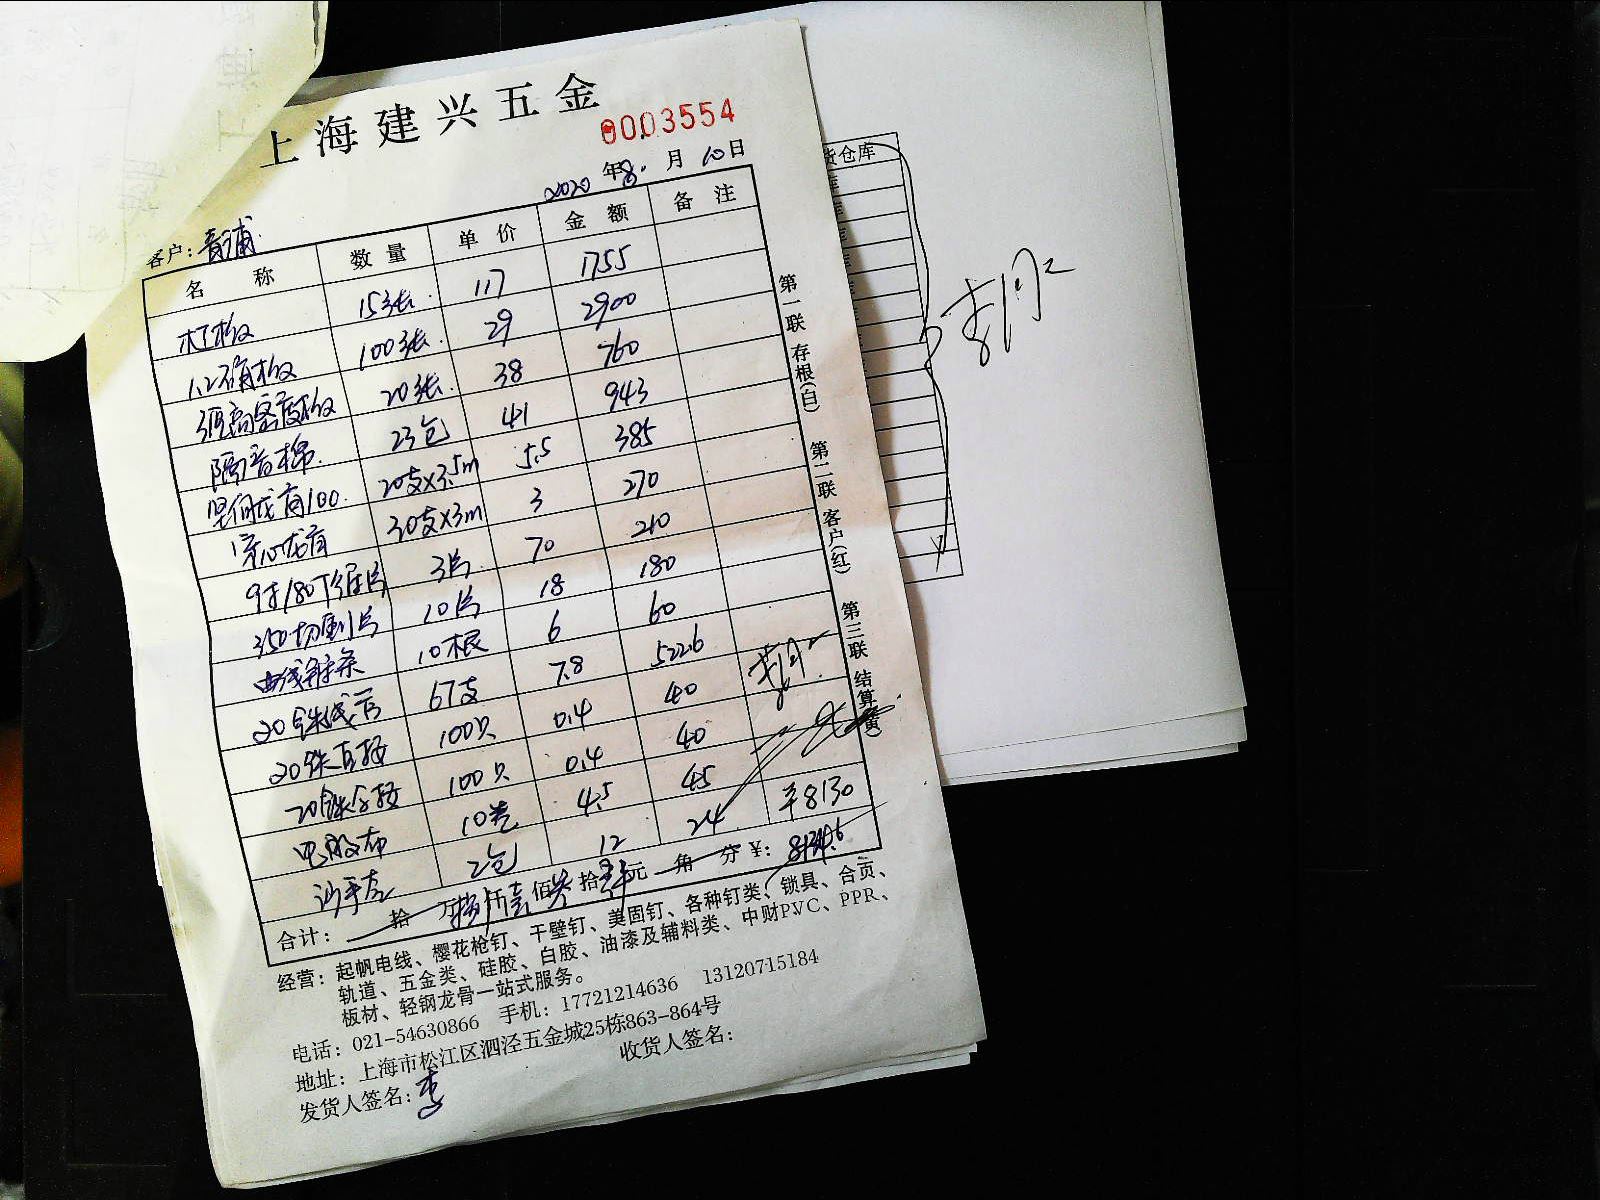 上海建兴五金
0003554
2020年8月10日
客户：青浦
名称 数量 单价 金额 备注
木工板 15张 117 1755
1.2石膏板 100张 29 2900
高密度板 20张 38 760
隔音棉 23包 41 943
竖向龙骨100 20支x3.5m 5.5 385
穿心龙骨 30支x3m 3 270
9寸/80T锯片 3片 70 210
350切割片 10片 18 180
曲线锯条 10根 6 60
20铁线管 67支 7.8 522.6
20铁直接 100只 0.4 40
20铁 接 100只 0.4 40
电胶布 10卷 4.5 45
纱手套 2包 12 24 ¥8130
合计： 拾 万 捌仟壹佰 拾 元 角 分 ¥： 8134.6
经营：起帆电线、樱花枪钉、干壁钉、美固钉、各种钉类、锁具、合页、
轨道、五金类、硅胶、白胶、油漆及辅料类、中财PVC、PPR、
板材、轻钢龙骨一站式服务。
电话：021-54630866 手机：17721214636 13120715184
地址：上海市松江区泗泾五金城25栋863-864号
发货人签名：李 收货人签名：
第一联 存根(白) 第二联 客户(红) 第三联 结算(黄)
货仓库